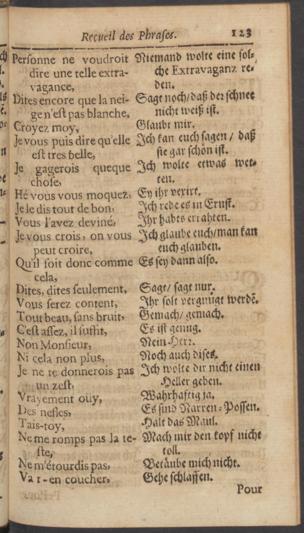 Recueil des Phrases. 123
Personne ne voudroit Niemand wolte eine sol-
dire une telle extra- che Extravaganz re-
vagance, den.
Dites encore que la nei- Sagt noch/ daß der schnee
gen'est pas blanche, nicht weiß ist.
Croyez moy, Glaubt mir.
Je vous puis dire qu'elle Ich kan euch sagen / daß
est tres belle, sie gar schön ist.
Je gagerois queque Ich wolte etwas wet-
chose, ten.
Hé vous vous moquez, Ey ihr vexirt.
Je le dis tout de bon, Ich rede es in Ernst.
Vous l'avez deviné, Ihr habts errahten.
Je vous crois, on vous Ich glaube euch/ man kan
peut croire, euch glauben.
Qu'il soit donc comme Es sey dann also.
cela,
Dites, dites seulement, Sagt/ sagt nur.
Vous serez content, Ihr solt vergnügt werdē.
Tout beau, sans bruit, Gemach/ gemach.
C'est assez, il suffit, Es ist genug.
Non Monsieur, Nein Herr.
Ni cela non plus, Noch auch dises.
Je ne te donnerois pas Ich wolte dir nicht einen
un zest, Heller geben.
Vrayement oüy, Wahrhaftig ja.
Des nefles, Es sind Narren-Possen.
Tais-toy, Halt das Maul.
Ne me romps pas la te- Mach mir den kopf nicht
ste, toll.
Ne m'étourdis pas, Betäube mich nicht.
Va t-en coucher, Gehe schlaffen.
Pour